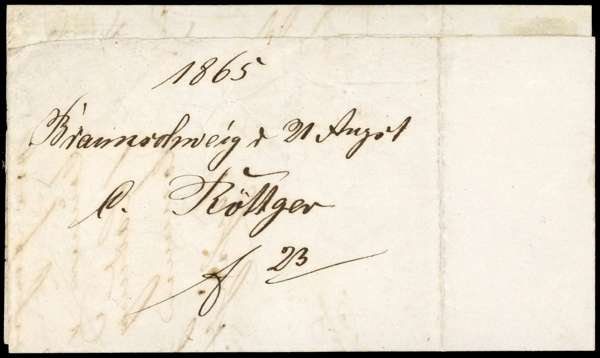 1865
Braunschweig d 21 Augst
C. Röttger
23